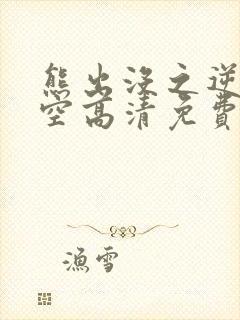 熊出没之逆
空高清免費
漁雪